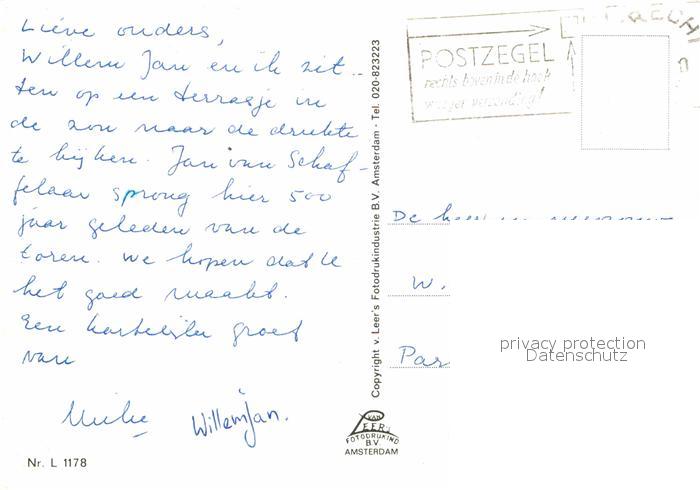 Lieve ouders,
Willem Jan en ik zit-
ten op een terrasje in
de zon naar de drukte
te kijken. Jan van Schaf-
felaar sprong hier 500
jaar geleden van de
toren. We hopen dat U
het goed maakt.
Een hartelijke groet
van
WillemJan.
Nr. L 1178
Copyright v. Leer's Fotodrukindustrie B.V. Amsterdam - Tel. 020-823223
VAN
LEER'S
FOTODRUKIND
B.V.
AMSTERDAM
POSTZEGEL
rechts boven in de hoek
De heer en mevrouw
W.
Par
privacy protection
Datenschutz